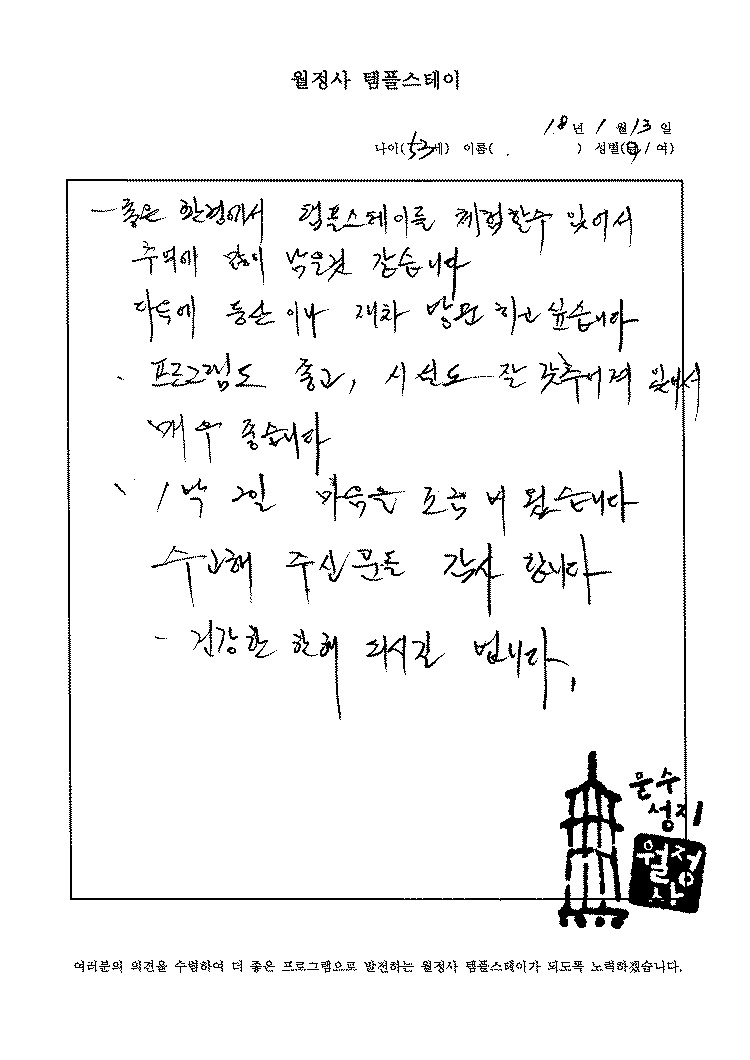 월정사 템플스테이
18년 1월 13일
나이(53세) 이름( ) 성별(남/여)
- 좋은 환경에서 템플스테이를 체험할수 있어서
추억에 많이 남을것 같습니다
다음에 등산이나 재차 방문 하고 싶습니다
. 프로그램도 좋고, 시설도 잘 갖추어져 있어서
매우 좋습니다
1박 2일 마음을 조금 비웠습니다
수고해 주신분들 감사 합니다
- 건강한 한해 되시길 빕니다.
문수
성지
월정
사
여러분의 의견을 수렴하여 더 좋은 프로그램으로 발전하는 월정사 템플스테이가 되도록 노력하겠습니다.